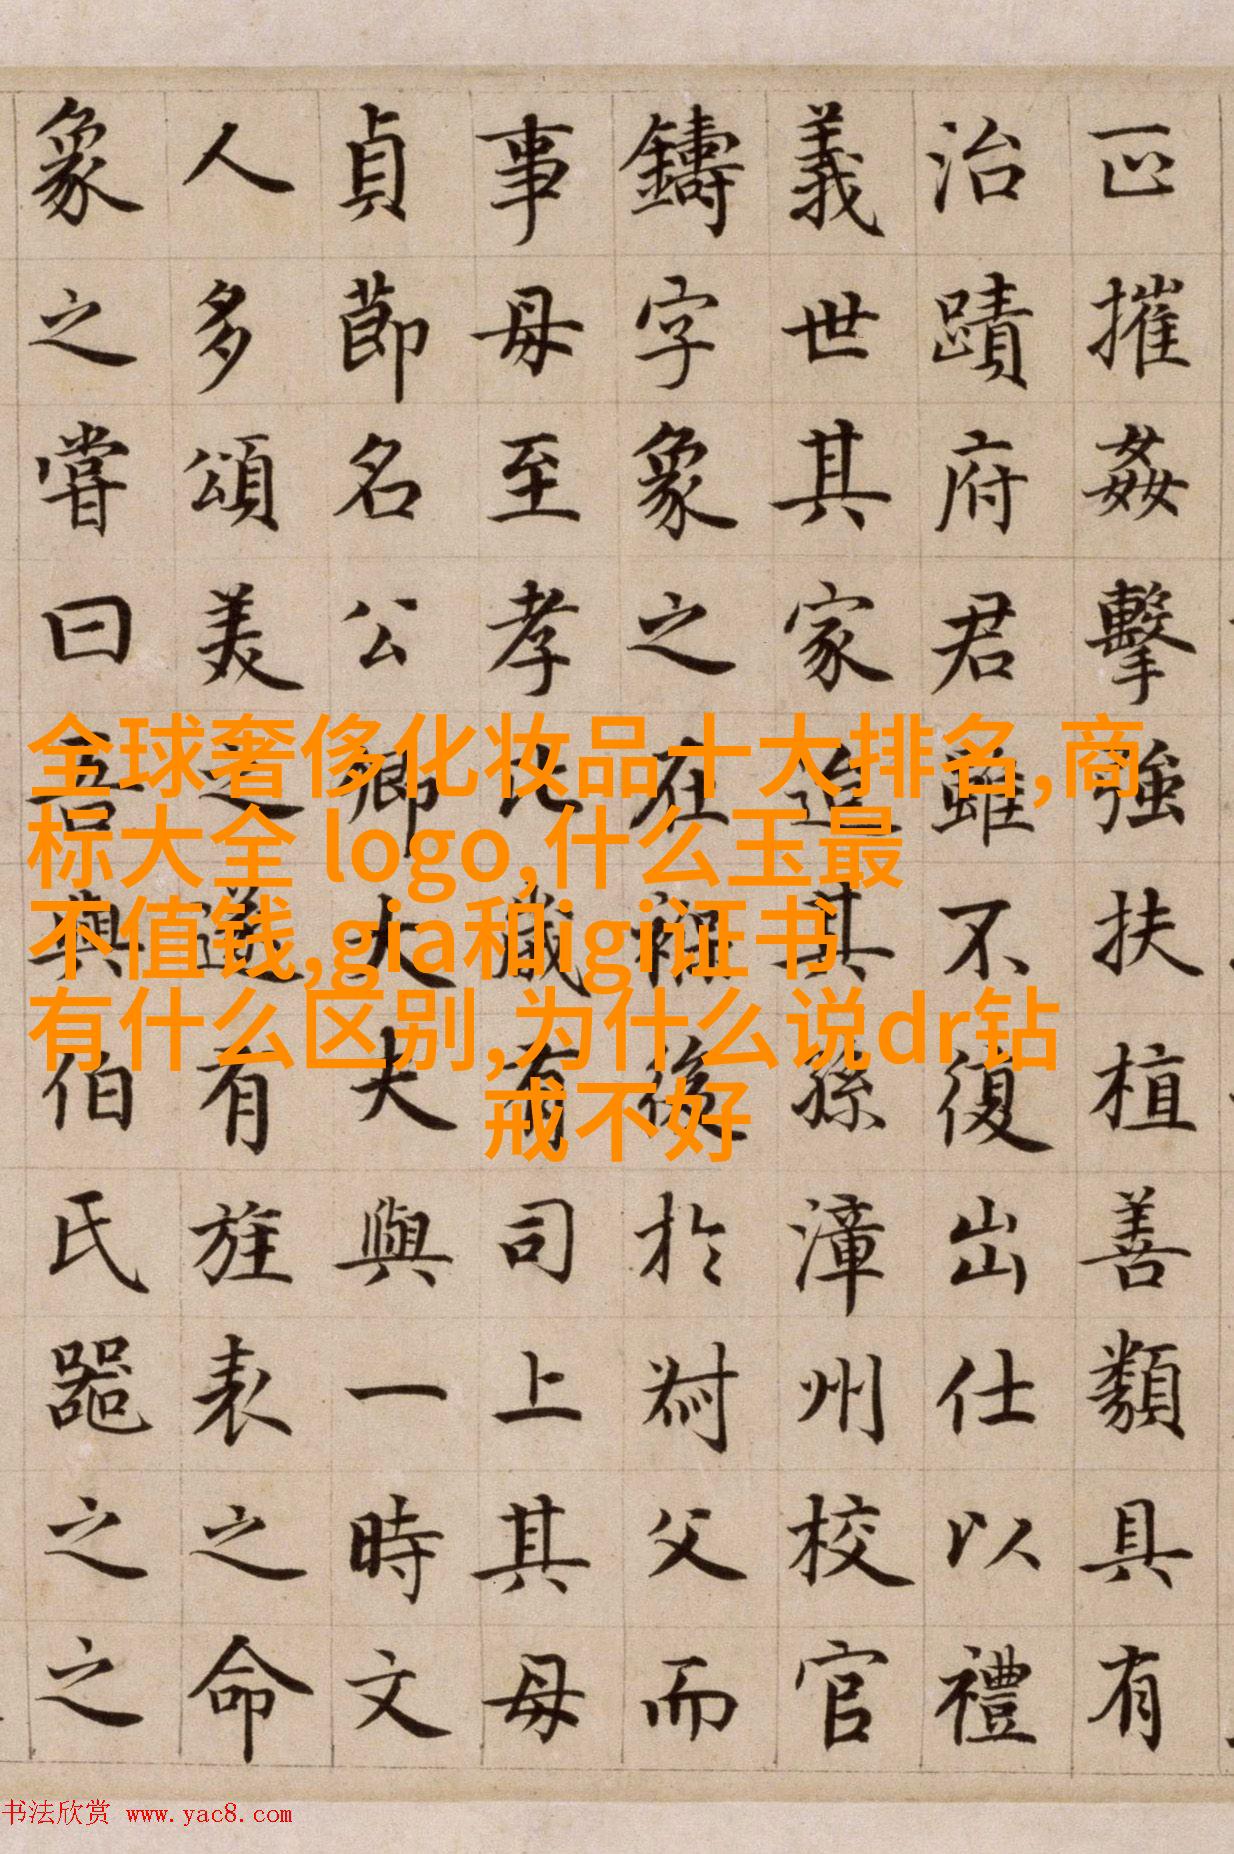 摧姦擊強扶植善類具有
治蹟府君雖不復出仕以禮
義世其家追其孫漳州校官
鑄字象之在後於父而
事母至孝比歲有司上其母
貞節名公卿大夫與一時文
人多頌美之有旌表之命
象之嘗曰吾與伯氏器之之
全球奢侈化妆品十大排名,商
标大全 logo,什么玉最
不值钱,gia和igi证书
有什么区别,为什么说dr钻
戒不好
书法欣赏 www.yac8.com